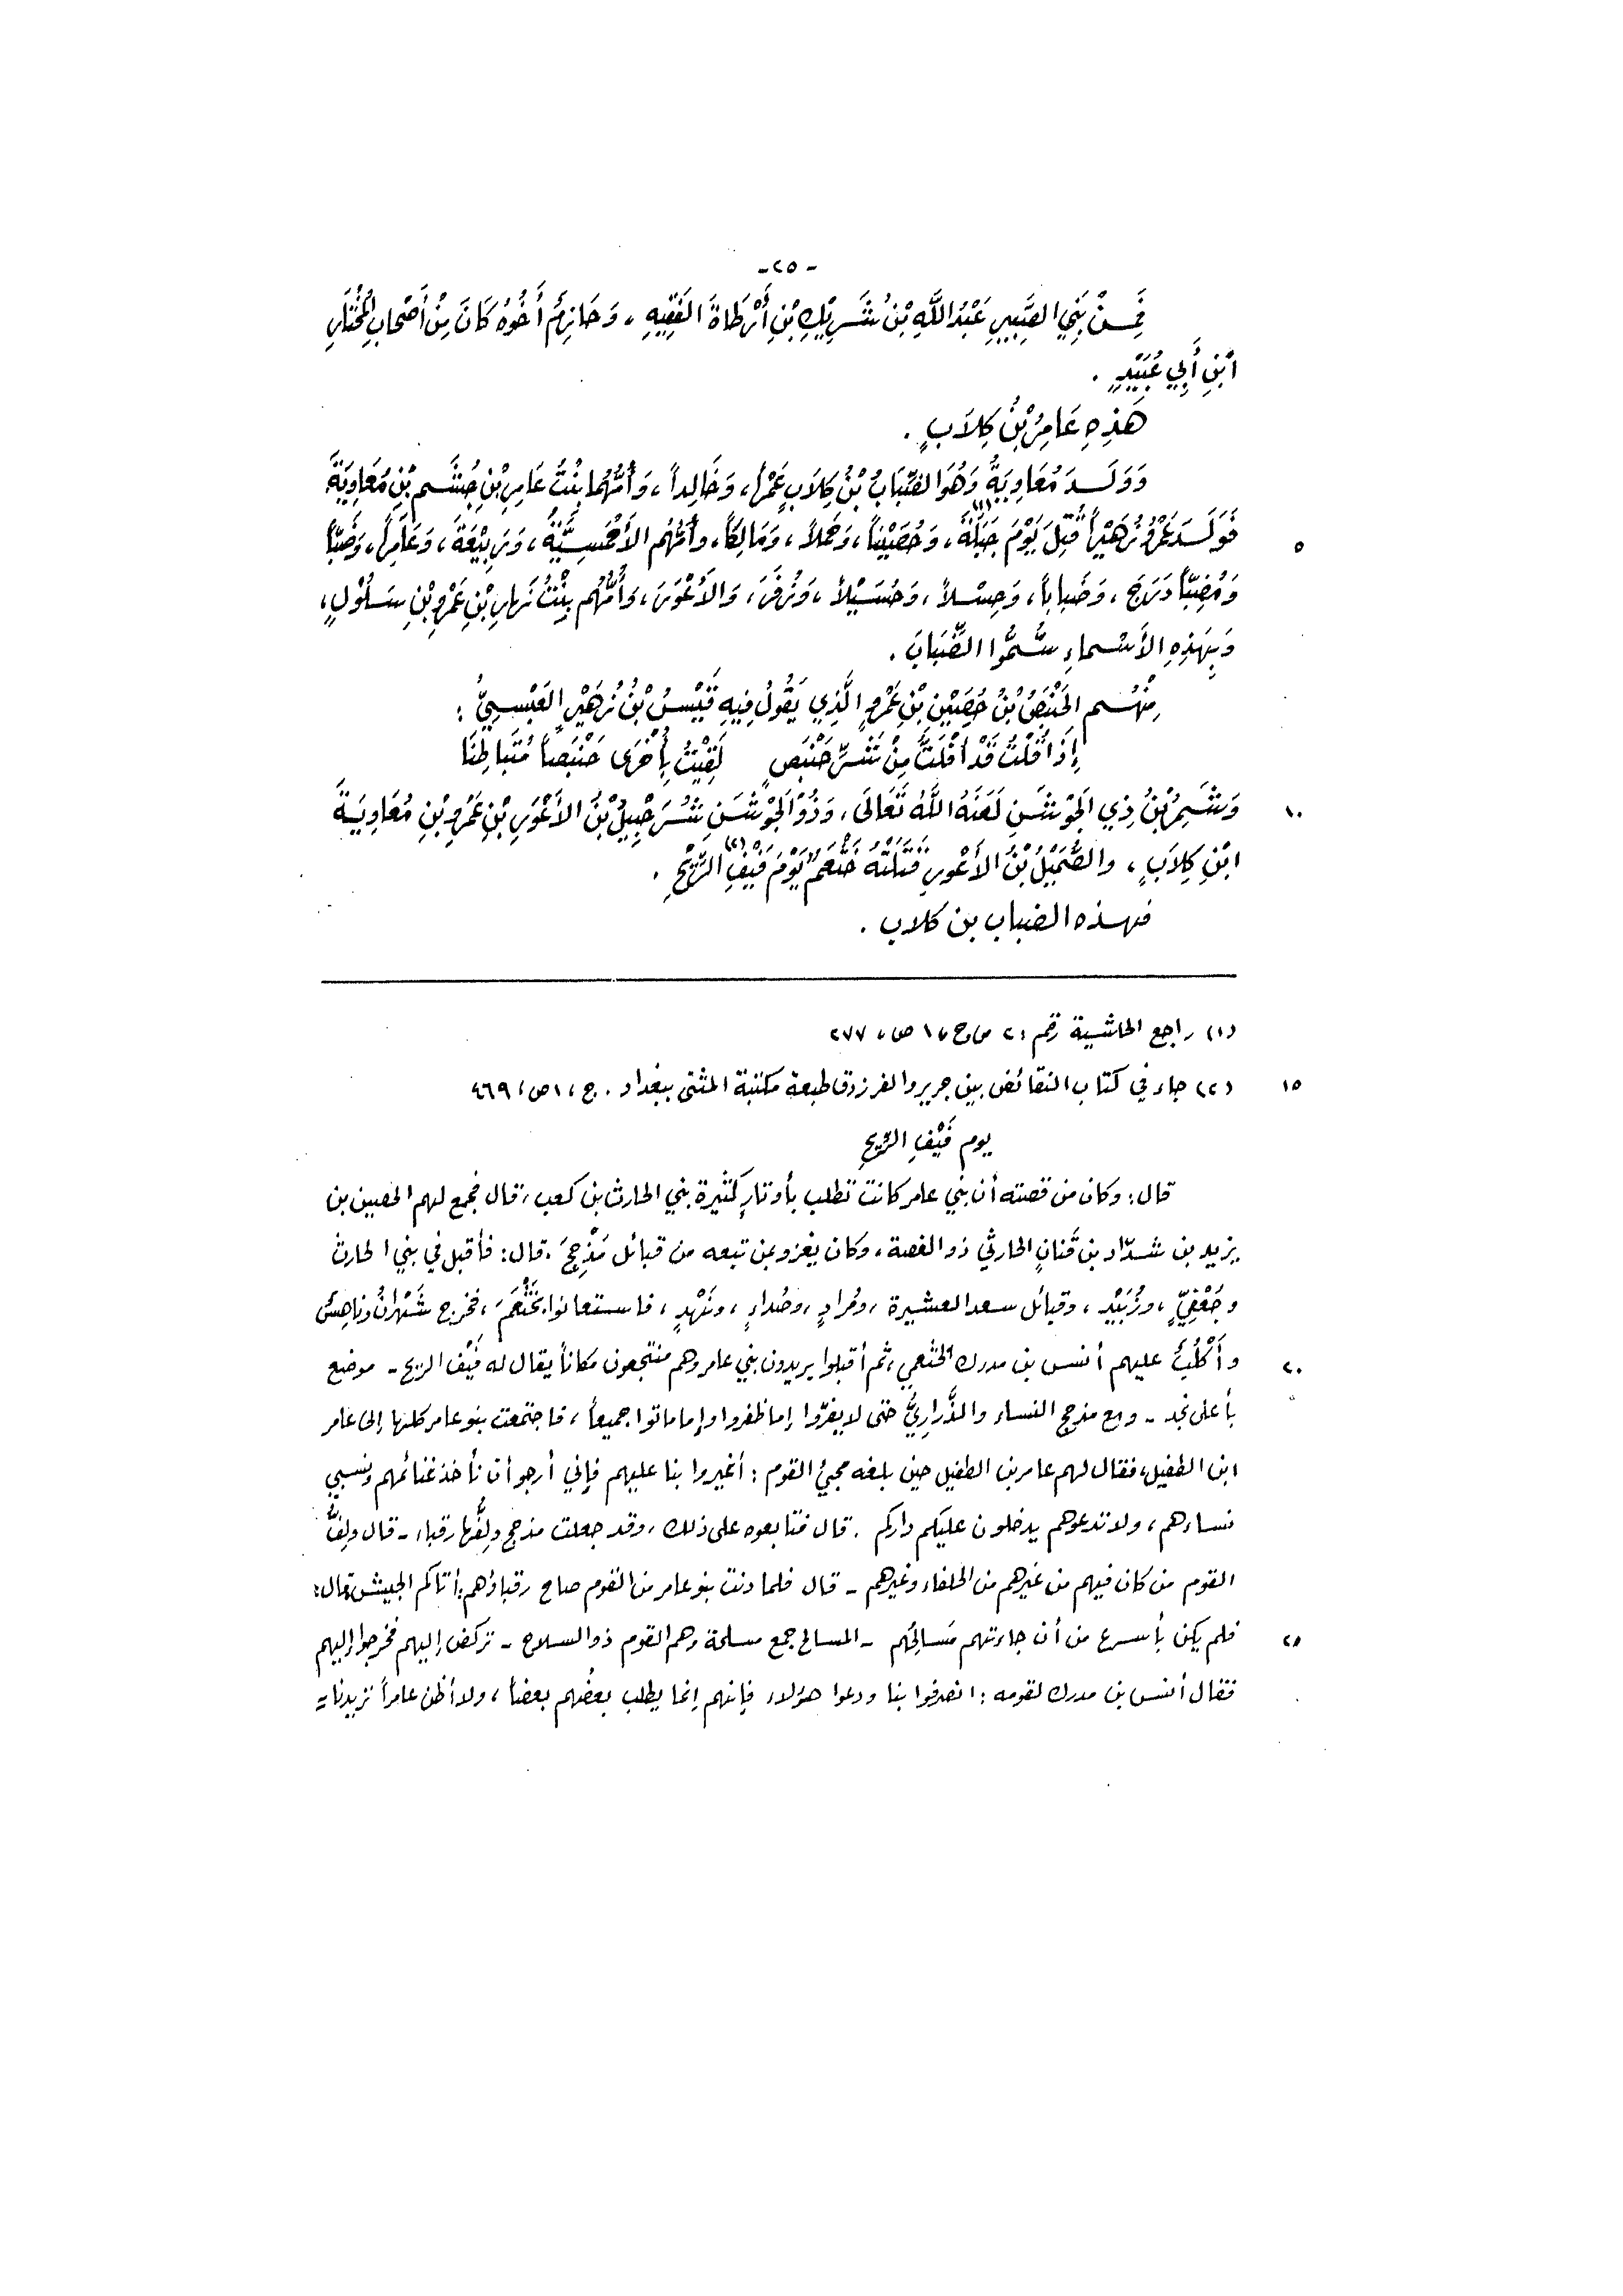 -٢٥-
فَمِنْ بَنِي الصَّبِيرِ عَبْدُ اللَّهِ بْنُ شَرِيْكِ بْنِ أَرْطَاةَ الفَقِيهِ، وَحَازِمٌ أَخُوهُ كَانَ مِنْ أَصْحَابِ المُخْتَارِ
ابْنِ أَبِي عُبَيْدٍ .
هَذِهِ عَامِرُ بْنُ كِلاَبٍ .
وَوَلَدَ مُعَاوِيَةُ وَهُوَ الضِّبَابُ بْنُ كِلاَبٍ عَمْراً، وَخَالِداً، وَأُمُّهُمَا بِنْتُ عَامِرِ بْنِ جُشَمِ بْنِ مُعَاوِيَةَ
٥ فَوَلَدَ عَمْرٌو زُهَيْراً قُتِلَ يَوْمَ جَبَلَةَ (١)، وَحُصَيْناً، وَحَمَلاً، وَمَالِكاً، وأُمُّهُم الأَحْمَسِيَّةُ، وَرَبِيْعَةَ، وَعَامِراً، وَضَبّاً
وَمُضِبّاً دَرَجَ، وَضَبَاباً، وَحِسْلاً، وَحُسَيْلاً، وَزُفَرَ، وَالأَعْوَرَ، وَأُمُّهُم بِنْتُ نَهَارِ بْنِ عَمْرِو بْنِ سَلُوْلٍ،
وَبِهَذِهِ الأَسْمَاءِ سُمُّوا الضِّبَابَ .
مِنْهُم الحَنْبَصُ بْنُ حُصَيْنِ بْنِ عَمْرٍو الَّذِي يَقُولُ فِيهِ قَيْسُ بْنُ زُهَيْرٍ العَبْسِيُّ :
إِذَا قُلْتُ قَدْ أَفْلَتُّ مِنْ شَرِّ حَنْبَصٍ لَقِيْتُ بِأُخْرَى حَنْبَصاً مُتَبَاطِنَا
١٠ وَشَمِرُ بْنُ ذِي الجَوْشَنِ لَعَنَهُ اللَّهُ تَعَالَى، وَذُو الجَوْشَنِ شُرَحْبِيلُ بْنُ الأَعْوَرِ بْنِ عَمْرِو بْنِ مُعَاوِيَةَ
ابْنِ كِلاَبٍ، والصُّمَيْلُ بْنُ الأَعْوَرِ قَتَلَتْهُ خَثْعَمٌ يَوْمَ فَيْفِ (٢) الرِّيْحِ .
فهذه الضباب بن كلاب .
(١) راجع الحاشية رقم: ٢ من ج، ١ ص، ٢٧٧
١٥ (٢) جاء في كتاب النقائض بين جرير والفرزدق طبعة مكتبة المثنى ببغداد . ج، ١ ص، ٤٦٩
يوم فَيْفِ الرِّيحِ
قال: وكان من قصته أن بني عامر كانت تطلب بأوتارٍ كثيرة بني الحارث بن كعب، قال فجمع لهم الحصين بن
يزيد بن شدّاد بن قَنانٍ الحارثي ذو الغصة، وكان يغزو بمن تبعه من قبائل مَذْحِجَ . قال: فأقبل في بني الحارث
وجُعْفِيٍّ، وزُبَيْد، وقبائل سعد العشيرة، ومُرادٍ، وصُداءٍ، ونَهْدٍ، فاستعانوا بخَثْعَمَ، فخرج شَهْرانُ وناهِسُ
٢٠ وأَكْلُبُ عليهم أنس بن مدرك الخثعمي، ثم أقبلوا يريدون بني عامر وهم منتجعون مكاناً يقال له فَيْف الريح - موضع
بأعلى نجد - ومع مذحج النساء والذَّرارِيُّ حتى لا يفرّوا إما ظفروا وإما ماتوا جميعاً، فاجتمعت بنو عامر كلها إلى عامر
ابن الطفيل، فقال لهم عامر بن الطفيل حين بلغه مجيُ القوم: أغيروا بنا عليهم فإني أرجو أن نأخذ غنائمهم ونسبي
نساءهم، ولا تدعوهم يدخلون عليكم داركم . قال فتابعوه على ذلك، وقد جعلت مذحج ولِفُّها رقباء - قال ولِفُّ
القوم من كان فيهم من غيرهم من الحلفاء وغيرهم - قال فلما دنت بنو عامر من القوم صاح رقباؤهم: أتاكم الجيش قال:
٢٥ فلم يكن بأسرع من أن جاءتهم مَسالِحُهم - المسالح جمع مسلحة وهم القوم ذو السلاح - تركض إليهم فخرجوا إليهم
فقال أنس بن مدرك لقومه: انصرفوا بنا ودعوا هؤلاء فإنهم إنما يطلب بعضُهم بعضاً، ولا أظن عامراً تريدنا =